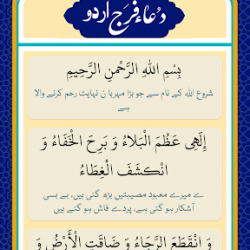 دُعاءِ فَرَج اردو
بِسْمِ اللهِ الرَّحْمنِ الرَّحِيمِ
شروع اللہ کے نام سے جو بڑا مہربا ن نہایت رحم کرنے والا
ہے
إِلَهِي عَظُمَ الْبَلَاءُ وَ بَرِحَ الْخَفَاءُ وَ
انْكَشَفَ الْغِطَاءُ
ے میرے معبود مصیبتیں بڑھ گئی ہیں، بے بسی
آشکار ہو گئی ہے، پردے فاش ہو گئے ہیں
وَ انْقَطَعَ الرَّجَاءُ وَ ضَاقَتِ الْأَرْضُ وَ